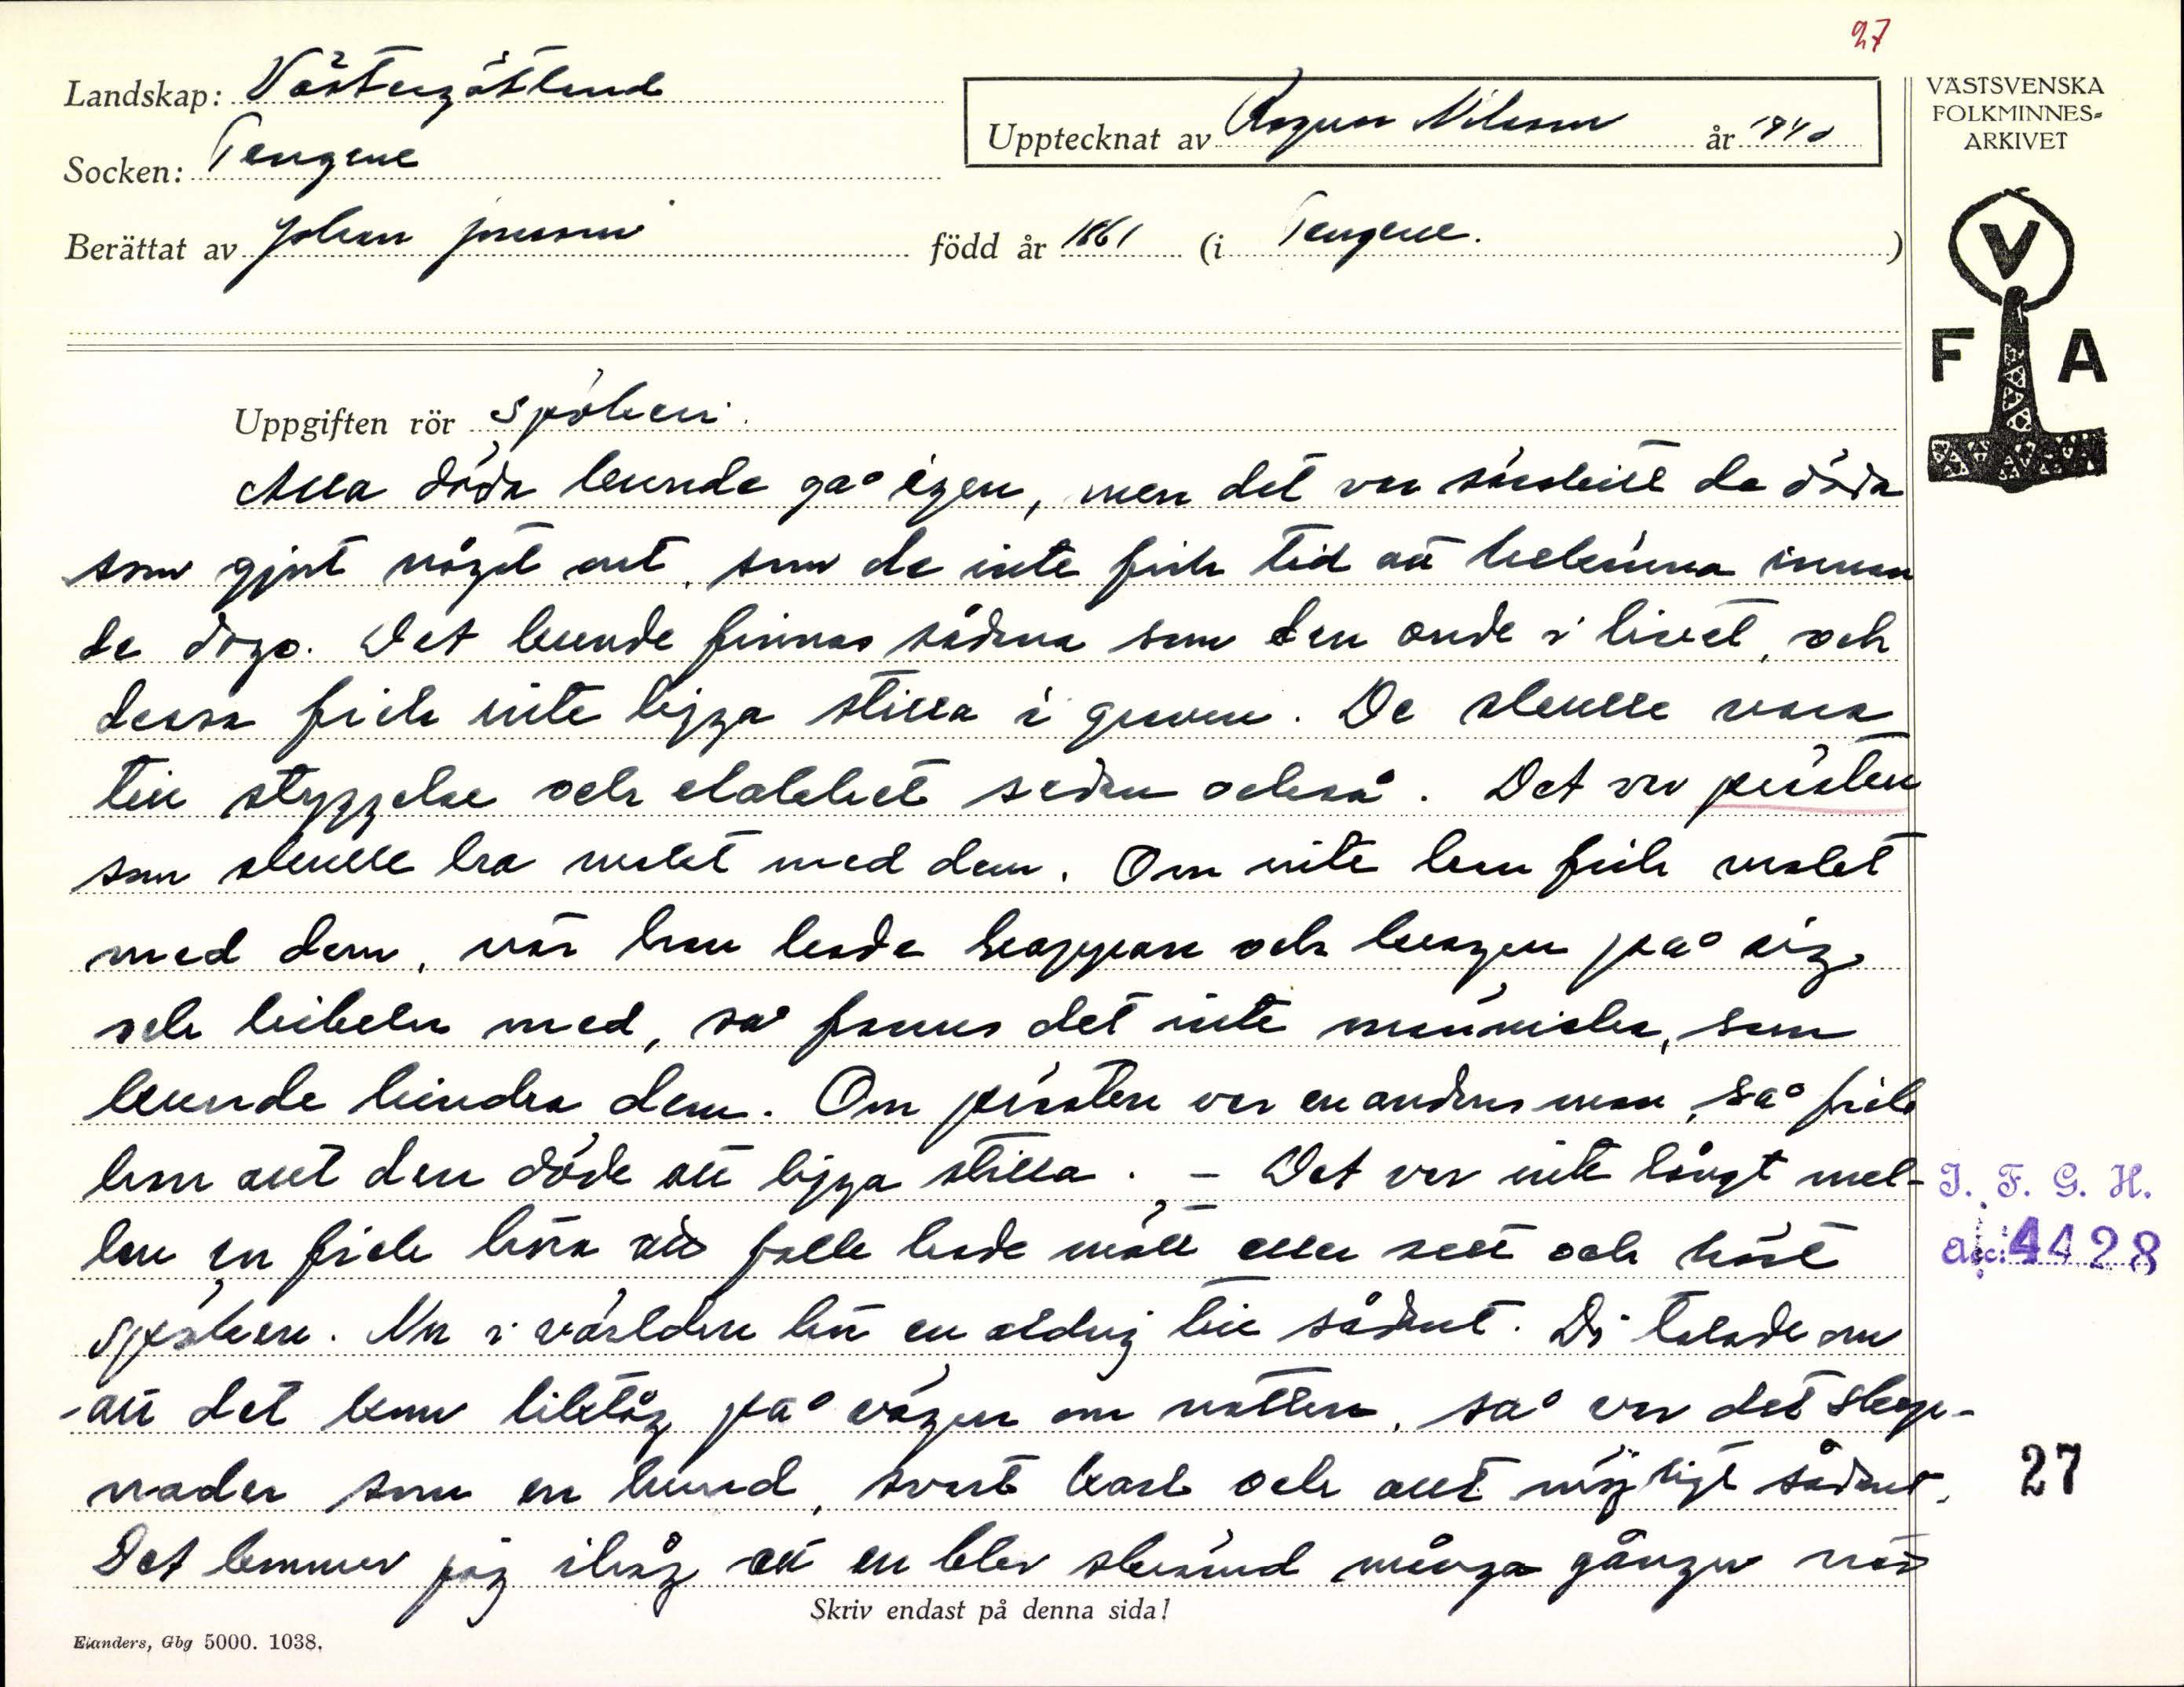 27
Landskap: Västergötland
Upptecknat av Ragnar Nilsson år 1940
VÄSTSVENSKA
FOLKMINNES-
ARKIVET
Socken: Tengene
Berättat av Johan Jonsson född år 1861 (i Tengene.)
V
F A
Uppgiften rör Spökeri.
Alla döda kunde gå igen, men det var särskilt de döda
som gjort något ont, som de inte fick tid att bekänna innan
de dogo. Det kunde finnas sådana som den onde i livet, och
dessa fick inte ligga stilla i graven. De skulle vara
till styggelse och elakhet sedan också. Det var prästen
som skulle ha makt med dem. Om inte han fick makt
med dem, när han hade kappan och kragen på sig
och bibeln med, så fanns det inte människa, som
kunde hindra dem. Om prästen var en andens man, så fick
han allt den döde att ligga stilla. – Det var inte långt mel-
lan en fick höra att folk hade mött eller sett och hört
spöken. Nu i världen hör en aldrig till sådant. Di talade om
att det kom liktåg på vägen om natten, så var det skep-
nader som en hund, svart karl och allt möjligt sådant.
Det kommer jag ihåg att en blev skrämd många gånger när
J. F. G. H.
Acc: 4428
27
Skriv endast på denna sida!
Elanders, Gbg 5000. 1038.